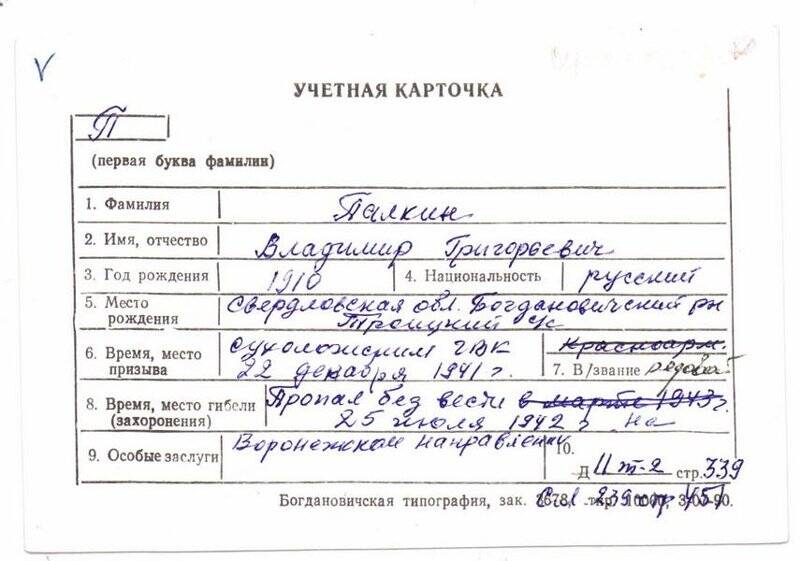 V
УЧЕТНАЯ КАРТОЧКА
П
(первая буква фамилии)
1. Фамилия Палкин
2. Имя, отчество Владимир Григорьевич
3. Год рождения 1910 4. Национальность русский
5. Место рождения Свердловская обл. Богдановичский рн
Троицкий с/с
6. Время, место призыва Сухоложским ГВК
22 декабря 1941 г.
Красноарм.
7. В/звание рядовой
8. Время, место гибели (захоронения) Пропал без вести в марте 1943 г.
25 июля 1942 г на
9. Особые заслуги Воронежском направлении
10.
Д II т-2 стр. 339
Богдановичская типография, зак. 8678, тир. 10000, 3-07-90.
стр 457